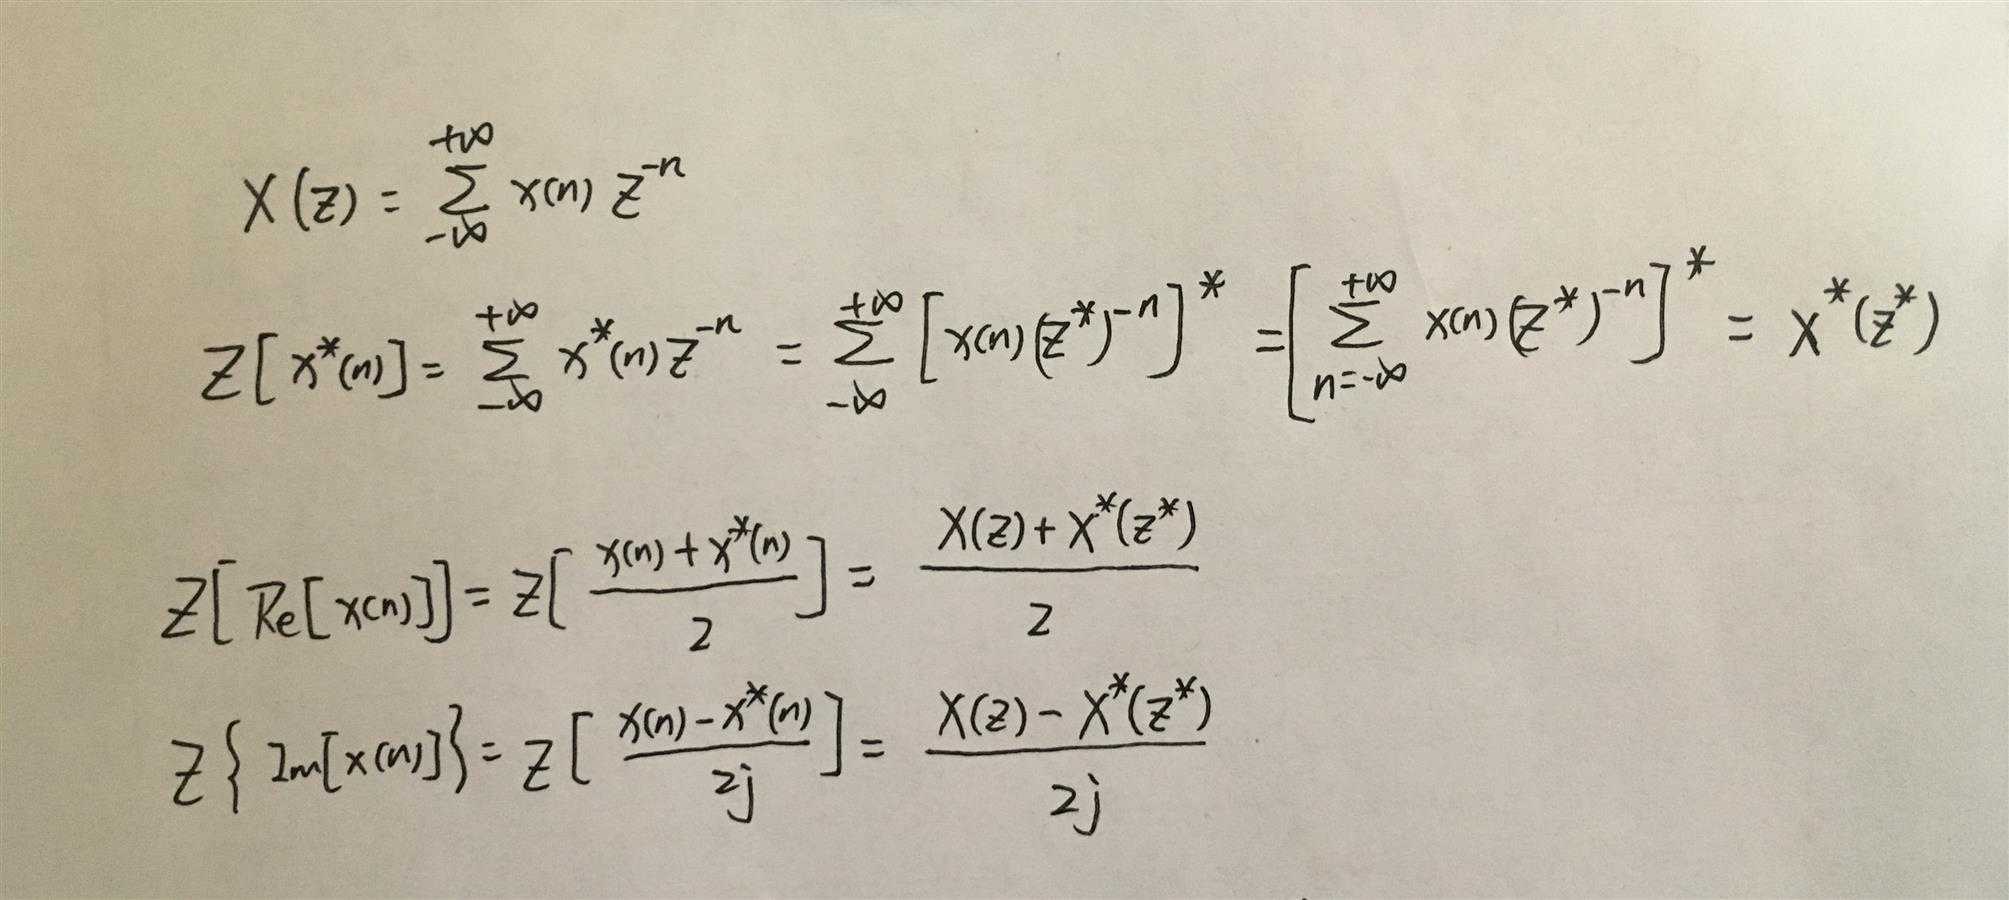 X(z) = \sum_{-\infty}^{+\infty} x(n) z^{-n}
Z[x^*(n)] = \sum_{-\infty}^{+\infty} x^*(n) z^{-n} = \sum_{-\infty}^{+\infty} [x(n)(z^*)^{-n}]^* = [\sum_{n=-\infty}^{+\infty} x(n)(z^*)^{-n}]^* = X^*(z^*)
Z[Re[x(n)]] = Z[\frac{x(n)+x^*(n)}{2}] = \frac{X(z)+X^*(z^*)}{2}
Z\{Im[x(n)]\} = Z[\frac{x(n)-x^*(n)}{2j}] = \frac{X(z)-X^*(z^*)}{2j}